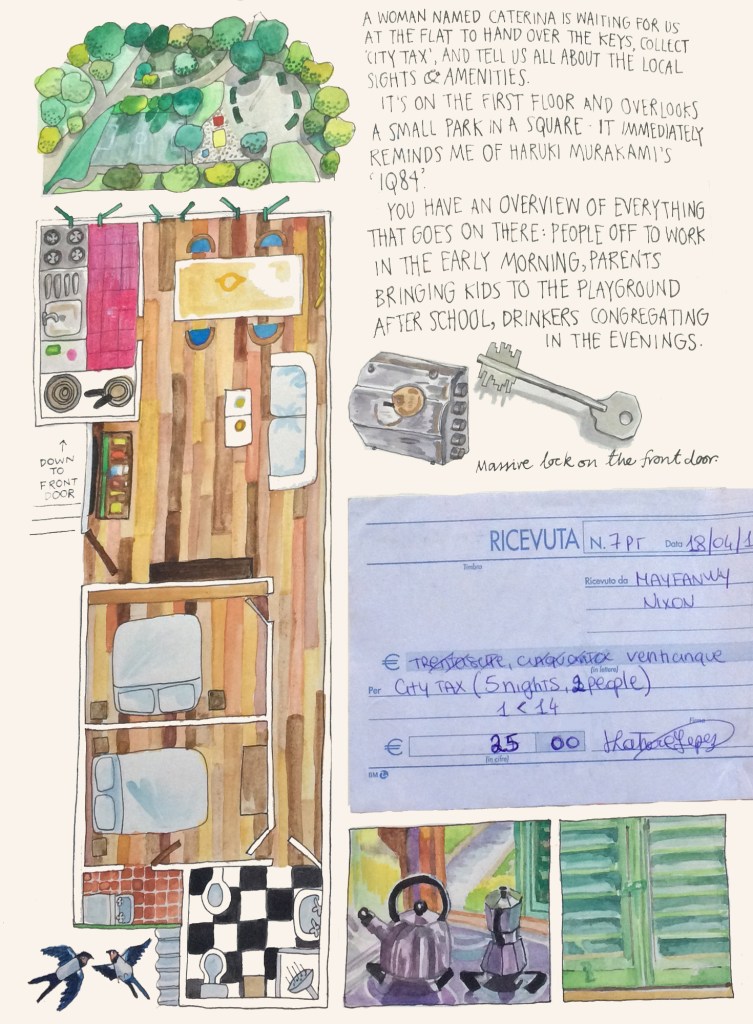 A WOMAN NAMED CATERINA IS WAITING FOR US
AT THE FLAT TO HAND OVER THE KEYS, COLLECT
'CITY TAX', AND TELL US ALL ABOUT THE LOCAL
SIGHTS & AMENITIES.
IT'S ON THE FIRST FLOOR AND OVERLOOKS
A SMALL PARK IN A SQUARE - IT IMMEDIATELY
REMINDS ME OF HARUKI MURAKAMI'S
'1Q84'.
YOU HAVE AN OVERVIEW OF EVERYTHING
THAT GOES ON THERE: PEOPLE OFF TO WORK
IN THE EARLY MORNING, PARENTS
BRINGING KIDS TO THE PLAYGROUND
AFTER SCHOOL, DRINKERS CONGREGATING
IN THE EVENINGS.
Massive lock on the front door.
DOWN
TO
FRONT
DOOR
RICEVUTA N. 7 PT Data 18/04/1
Timbro
Ricevuto da MAYFANWY
NIXON
€ ventinque
(in lettere)
Per CITY TAX (5 nights, 2 people)
1 < 14
Firma
€ 25 00
(in cifre)
BM